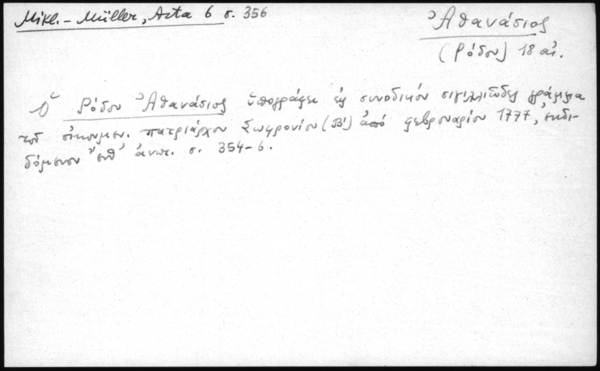 Mikl.- Müller, Acta 6 σ. 356
Ἀθανάσιος
(Ρόδου) 18 αἰ.
Ὁ Ρόδου Ἀθανάσιος ὑπογράφει εἰς συνοδικὸν σιγιλλιῶδες γράμμα
τοῦ οἰκουμεν. πατριάρχου Σωφρονίου (Β΄) ἀπὸ φεβρουαρίου 1777, ἐκδι-
δόμενον ἀνωτ. σ. 354-6.